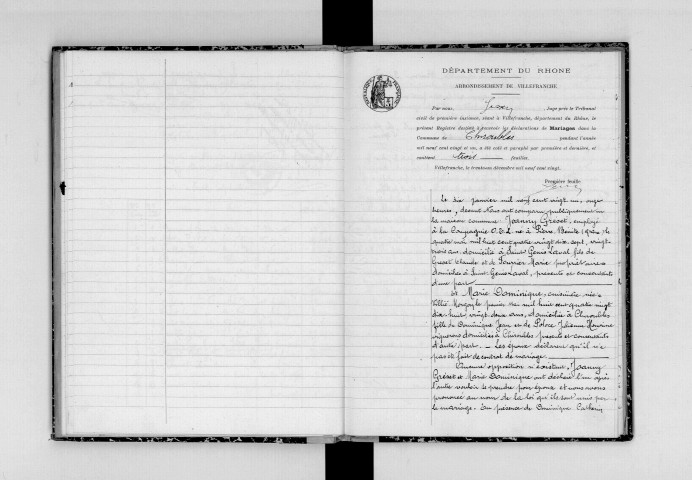 DÉPARTEMENT DU RHONE
ARRONDISSEMENT DE VILLEFRANCHE
Par nous, Juge près le Tribunal
civil de première instance, séant à Villefranche, département du Rhône, le
présent Registre destiné à recevoir les déclarations de Mariages dans la
Commune de Chiroubles pendant l'année
mil neuf cent vingt et un, a été coté et paraphé par première et dernière, et
contient trois feuilles.
Villefranche, le trente-un décembre mil neuf cent vingt.
Première feuille
Le dix janvier mil neuf cent vingt un, onze
heures, devant Nous ont comparu publiquement en
la maison commune Joanny Gréset, employé
à la Compagnie O.T.L. né à Pierre Bénite (Rhône) le
quatre mai mil huit cent quatre vingt dix sept, vingt
trois ans, domicilié à Saint Genis Laval fils de
Greset Claude et de Fournier Marie propriétaires
domiciliés à Saint Genis Laval, présents et consentants
d'une part
et Marie Dominique, cuisinière née à
Villié Morgon le janvier mil huit cent quatre vingt
dix huit, vingt deux ans, domiciliée à Chiroubles
fille de Dominique Jean et de Julienne
vignerons domiciliés à Chiroubles présents et consentants
d'autre part. — Les époux déclarent qu'il n'a
pas été fait de contrat de mariage.
Aucune opposition n'existant, Joanny
Gréset et Marie Dominique ont déclaré l'un après
l'autre vouloir se prendre pour époux et nous avons
prononcé au nom de la loi qu'ils sont unis par
le mariage. En présence de Dominique